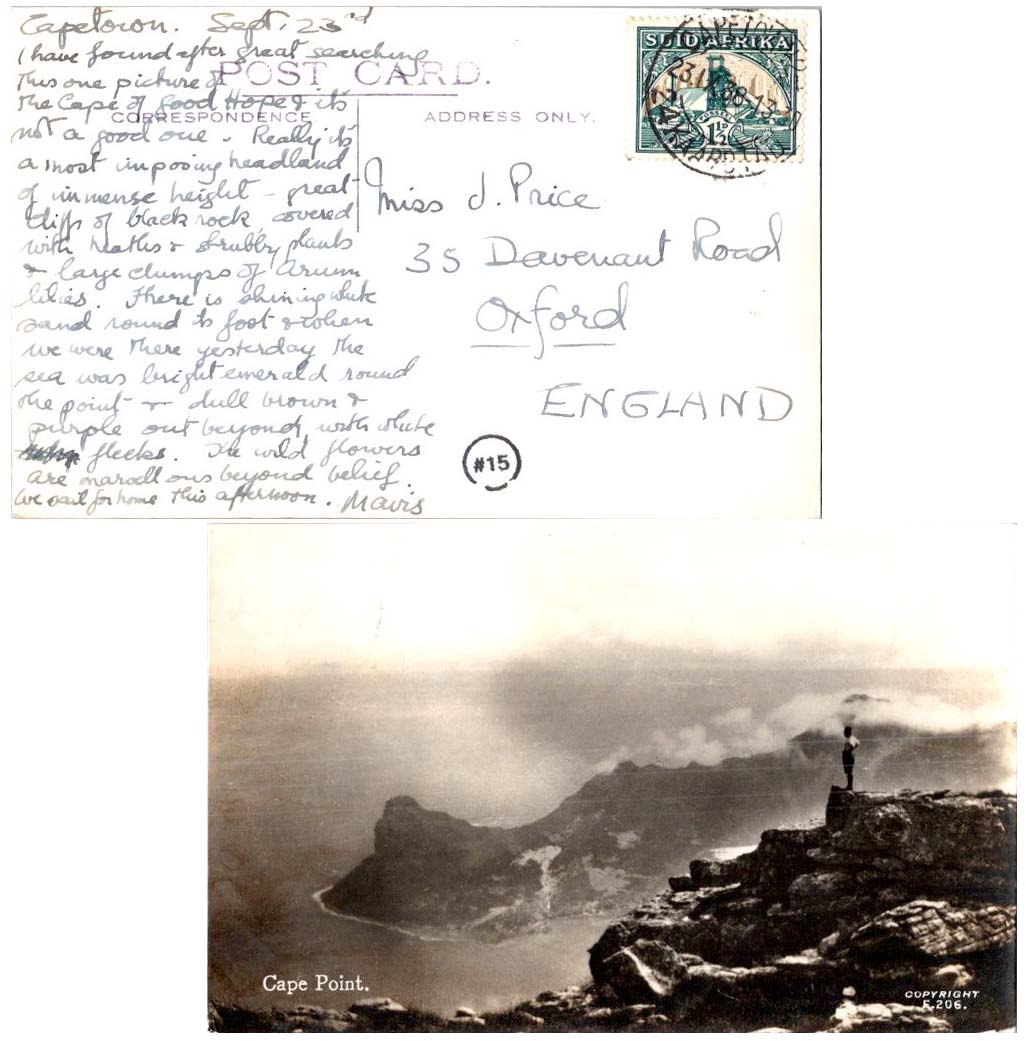 Capetown. Sept. 23rd
I have found after great searching
this one picture of
the Cape of Good Hope & it's
not a good one. Really it's
a most imposing headland
of immense height - great
cliffs of black rock, covered
with heaths & shrubby plants
& large clumps of Arum
lilies. There is shining white
sand round its foot & when
we were there yesterday the
sea was bright emerald round
the point - & dull brown &
purple out beyond, with white
flecks. The wild flowers
are marvellous beyond belief.
We sail for home this afternoon. Mavis
POST CARD.
CORRESPONDENCE
ADDRESS ONLY.
SUIDAFRIKA
POSSEEL
1½D
Miss J. Price
35 Davenant Road
Oxford
ENGLAND
#15
Cape Point.
COPYRIGHT
E.206.